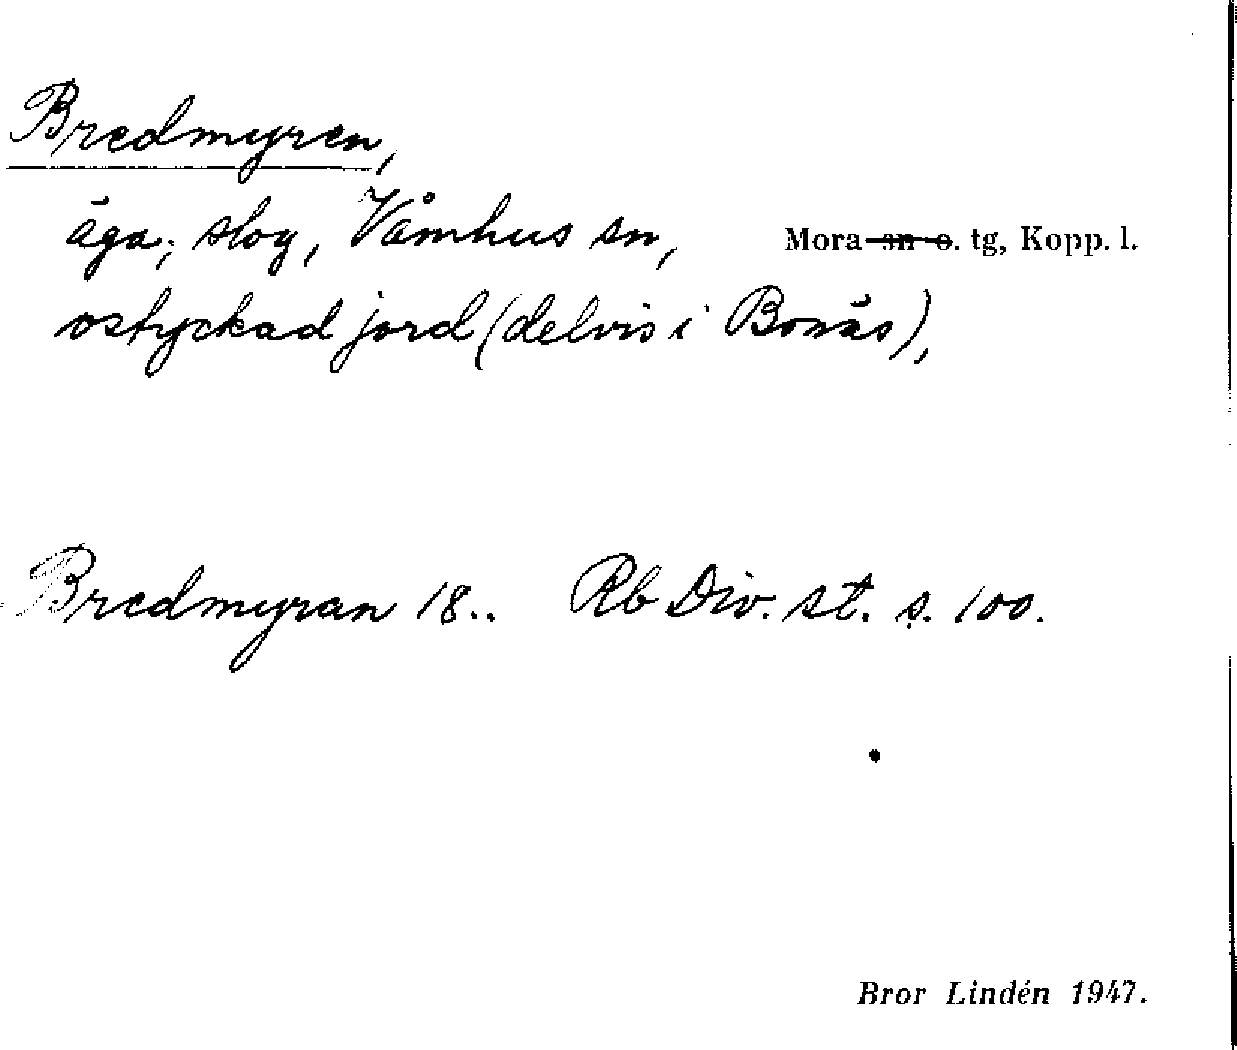 Bredmyren,
äga, slog, Våmhus sn, Mora sn o. tg, Kopp. l.
ostyckad jord (delvis i Bonäs),
Bredmyran 18.. Rb Div. st. s. 100.
Bror Lindén 1947.